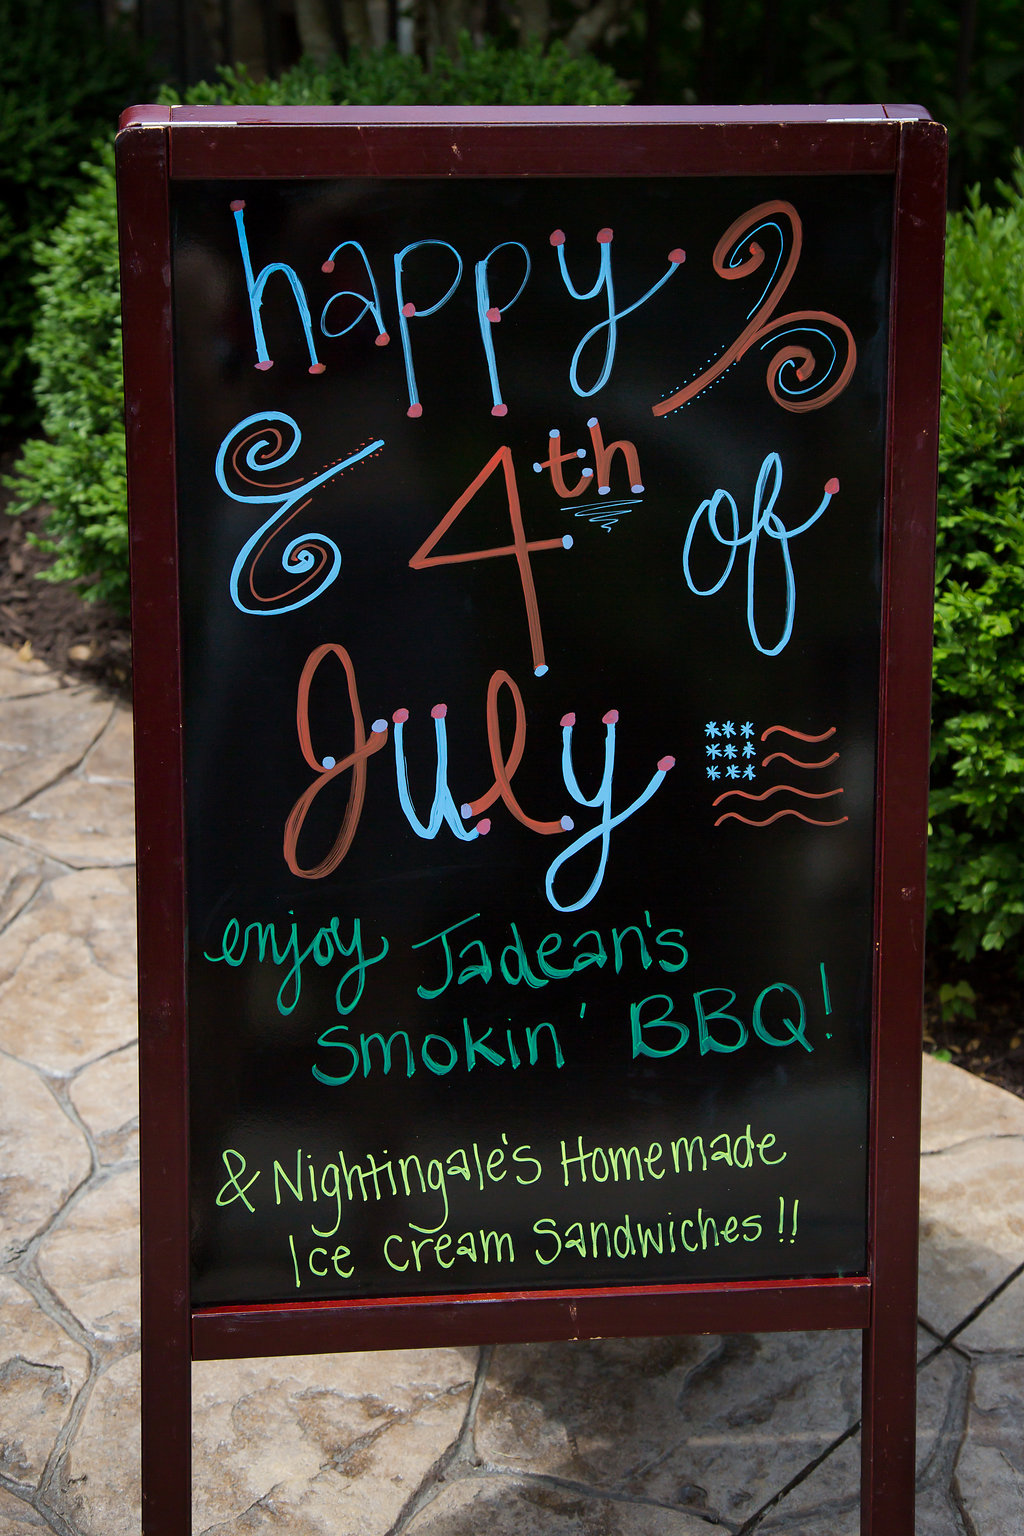 happy
4th of
July
enjoy Jadean's
Smokin' BBQ!
& Nightingale's Homemade
Ice Cream Sandwiches!!